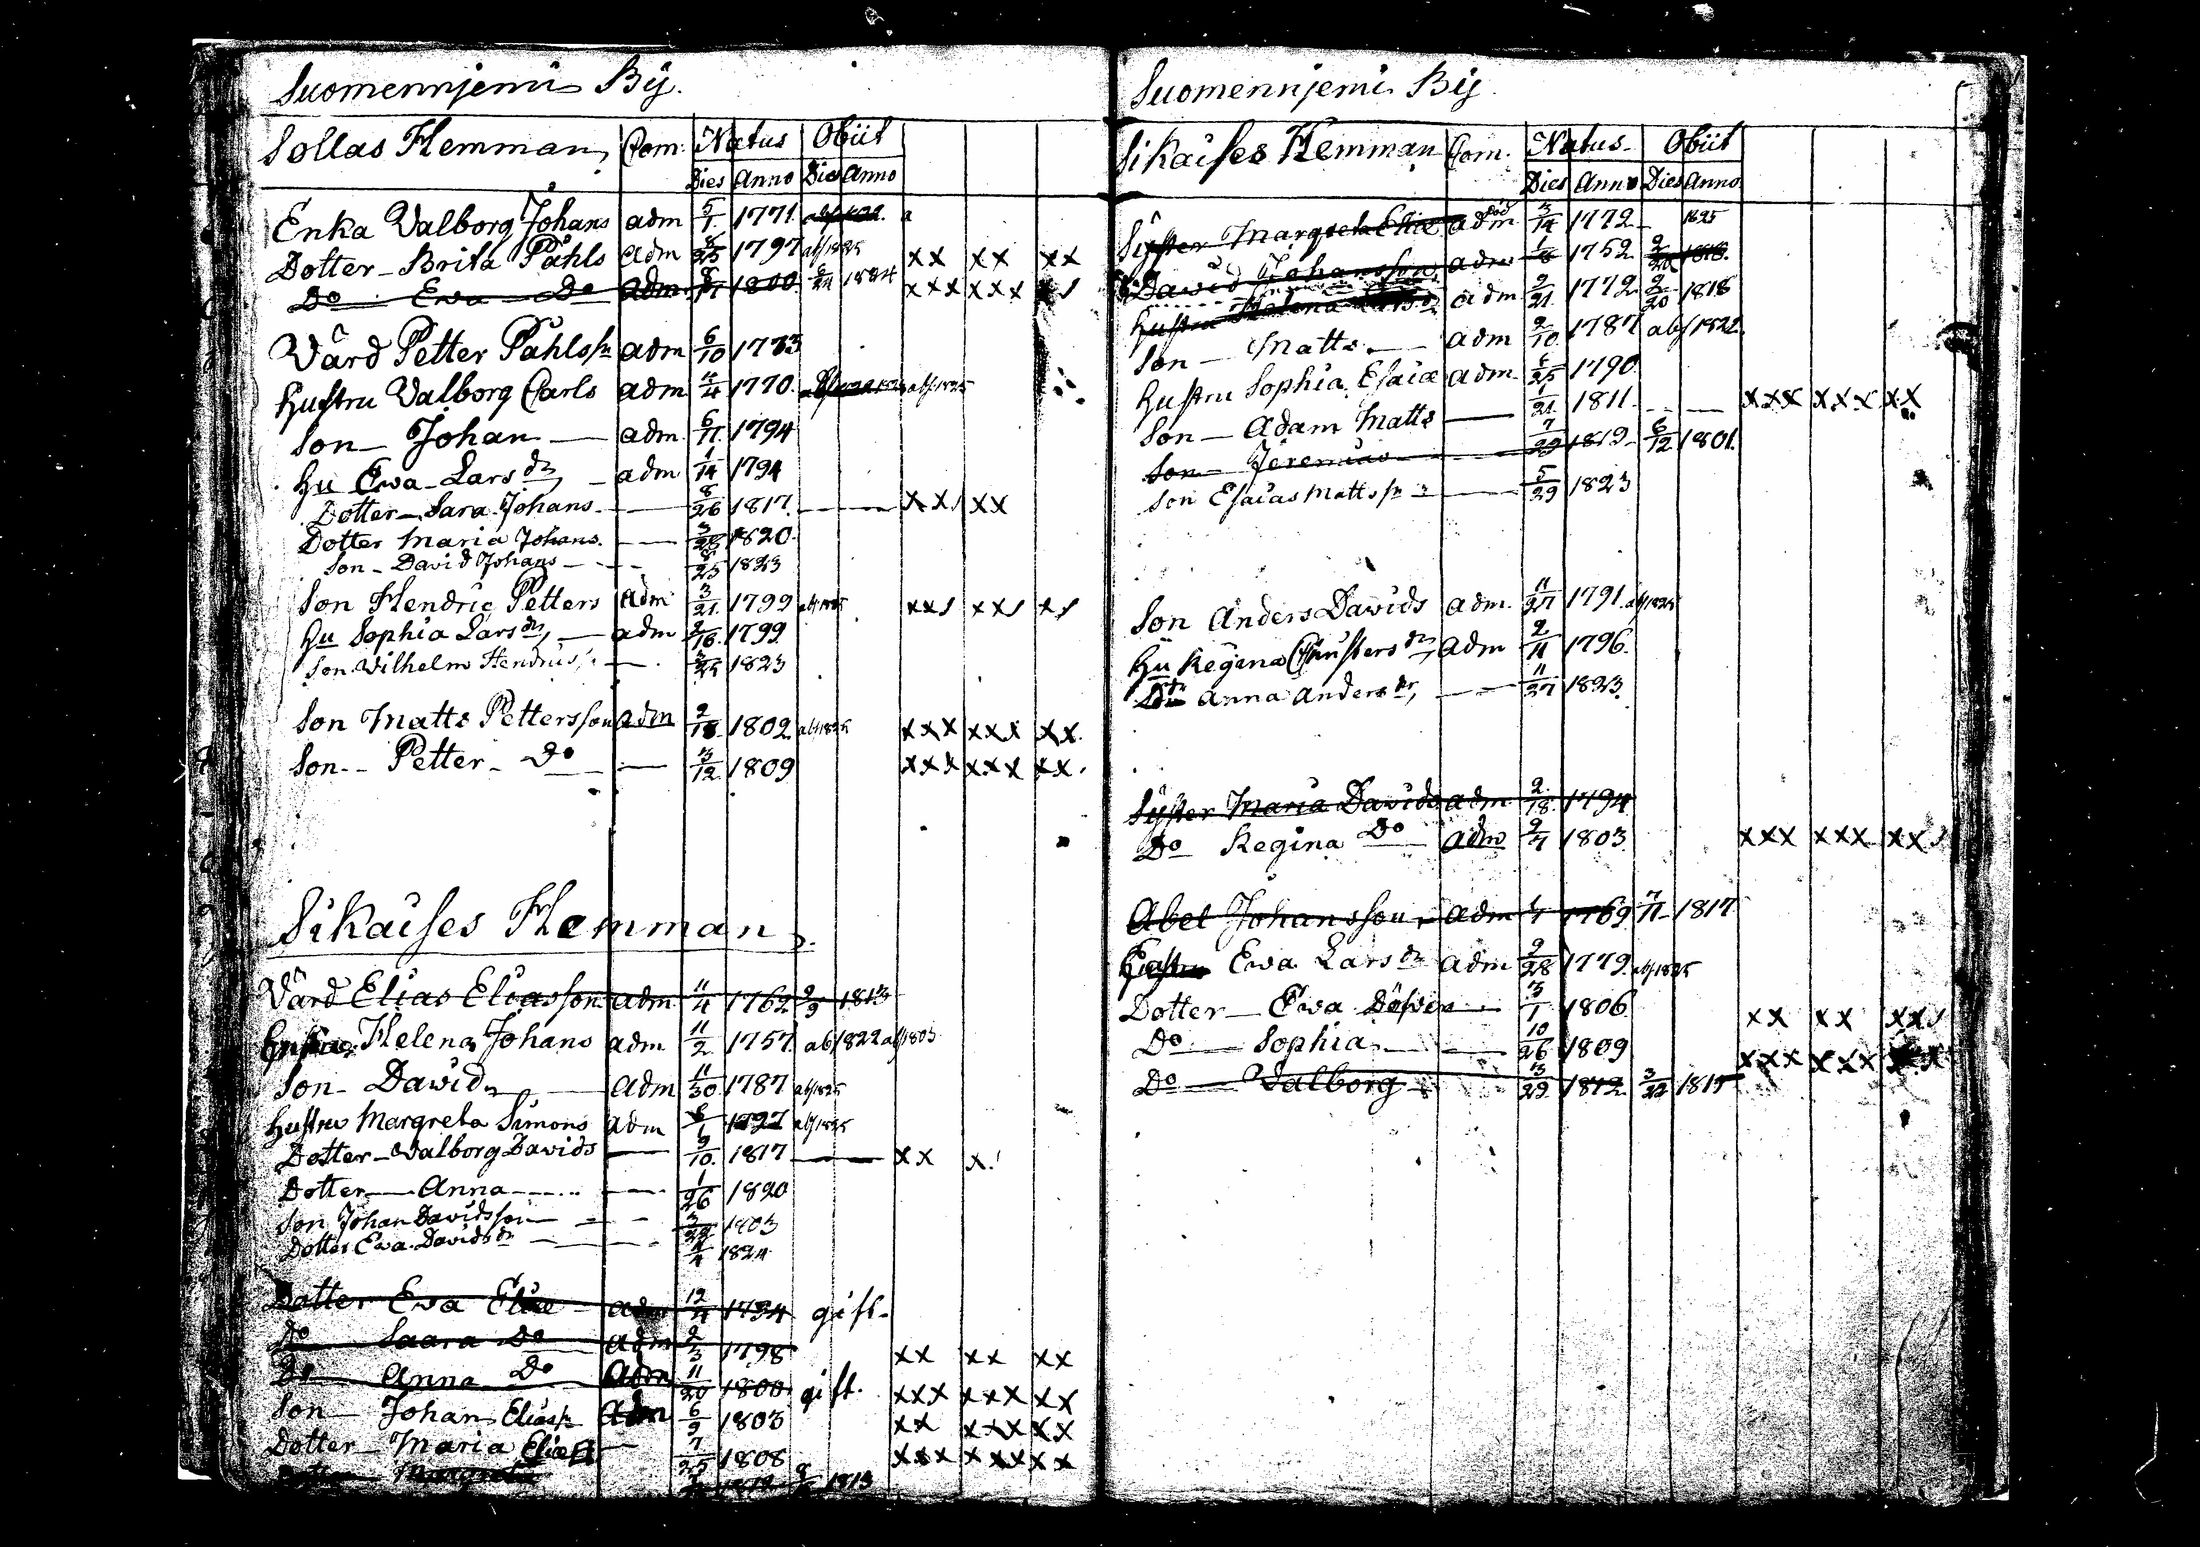 Suomennjemi By.
Sollas Hemman, Com. Natus Obiit
Dies Anno Dies Anno
Enka Valborg Johans adm 5/1. 1771.
Dotter - Brita Påhls adm 1797 abs 1825 xx xx xx
Do Ewa Do adm 1800 1824 xxx xxx
Vård Petter Påhlss. adm 6/10 1773
Hustru Valborg Carls adm 1770. abs 1825
Son - Johan adm. 6/11. 1794
Hu Ewa Lars dr, adm 1/14 1794
Dotter - Sara Johans 8/26 1817. xx xx
Dotter Maria Johans. 1820
Son - David Johans 8/25 1823
Son Hendric Petters adm 3/21. 1799 abs 1825 xx xx x
Hu Sophia Lars dr, adm 2/16. 1799
Son Wilhelm Hendrics. 1823
Son Matts Pettersson adm 2/18. 1802 abs 1825 xxx xxx xx
Son - Petter - Do 3/12 1809 xxx xxx xx
Sikaises Hemman,
Vård Elias Eliasson adm 11/4 1762 2/9 1813
Hustru Helena Johans adm 11/2 1757. abs 1822
Son - David adm 11/30 1787 abs 1825
Hustru Margreta Simons adm 1797 abs 1825
Dotter - Valborg Davids 9/10. 1817 xx x
Dotter Anna 1/26 1820
Son Johan Davidsson
Dotter Ewa Davids dr 1824
Dotter Ewa Eliæ adm 12/4 gift.
Do Saara Do adm 2/3 1798 xx xx xx
Do Anna Do adm 11/20 1800 gift. xxx xxx xx
Son Johan Eliass. adm 6/9 1803 xx xxx xx
Dotter Maria Eliæ 7/25 1808 xxx xxx xx
Dotter Margreta 1813
Suomennjemi By.
Sikaises Hemman Com. Natus Obiit
Dies Anno Dies Anno
Syster Margreta Eliæ adm död 3/14 1772 1825
David Johansson adm 1752 1818.
Hustru Helena Lars dr adm 2/21 1772 2/20 1818
Son - Matts adm 2/10. 1787 abs 1822.
Hustru Sophia Esaiæ adm 1790
Son - Adam Matts 1/21. 1811. xxx xxx xx
Son - Jeremias 7/29 1819 6/12
Son Esaias Mattss. 5/29 1823
Son Anders Davids adm. 11/27 1791. abs 1825
Hu Regina Christers dr, adm 2/11 1796.
Anna Anders dr, 11/27 1823.
Syster Maria Davids adm 2/18. 1794
Do Regina Do adm 2/7 1803 xxx xxx xx
Abel Johansson adm 1769 7/11 1817
Hustru Ewa Lars dr adm 9/28 1779. abs 1825
Dotter Ewa 3/1 1806 xx xx xx
Do Sophia 10/26 1809 xxx xxx
Do Valborg 3/29. 1812 3/22